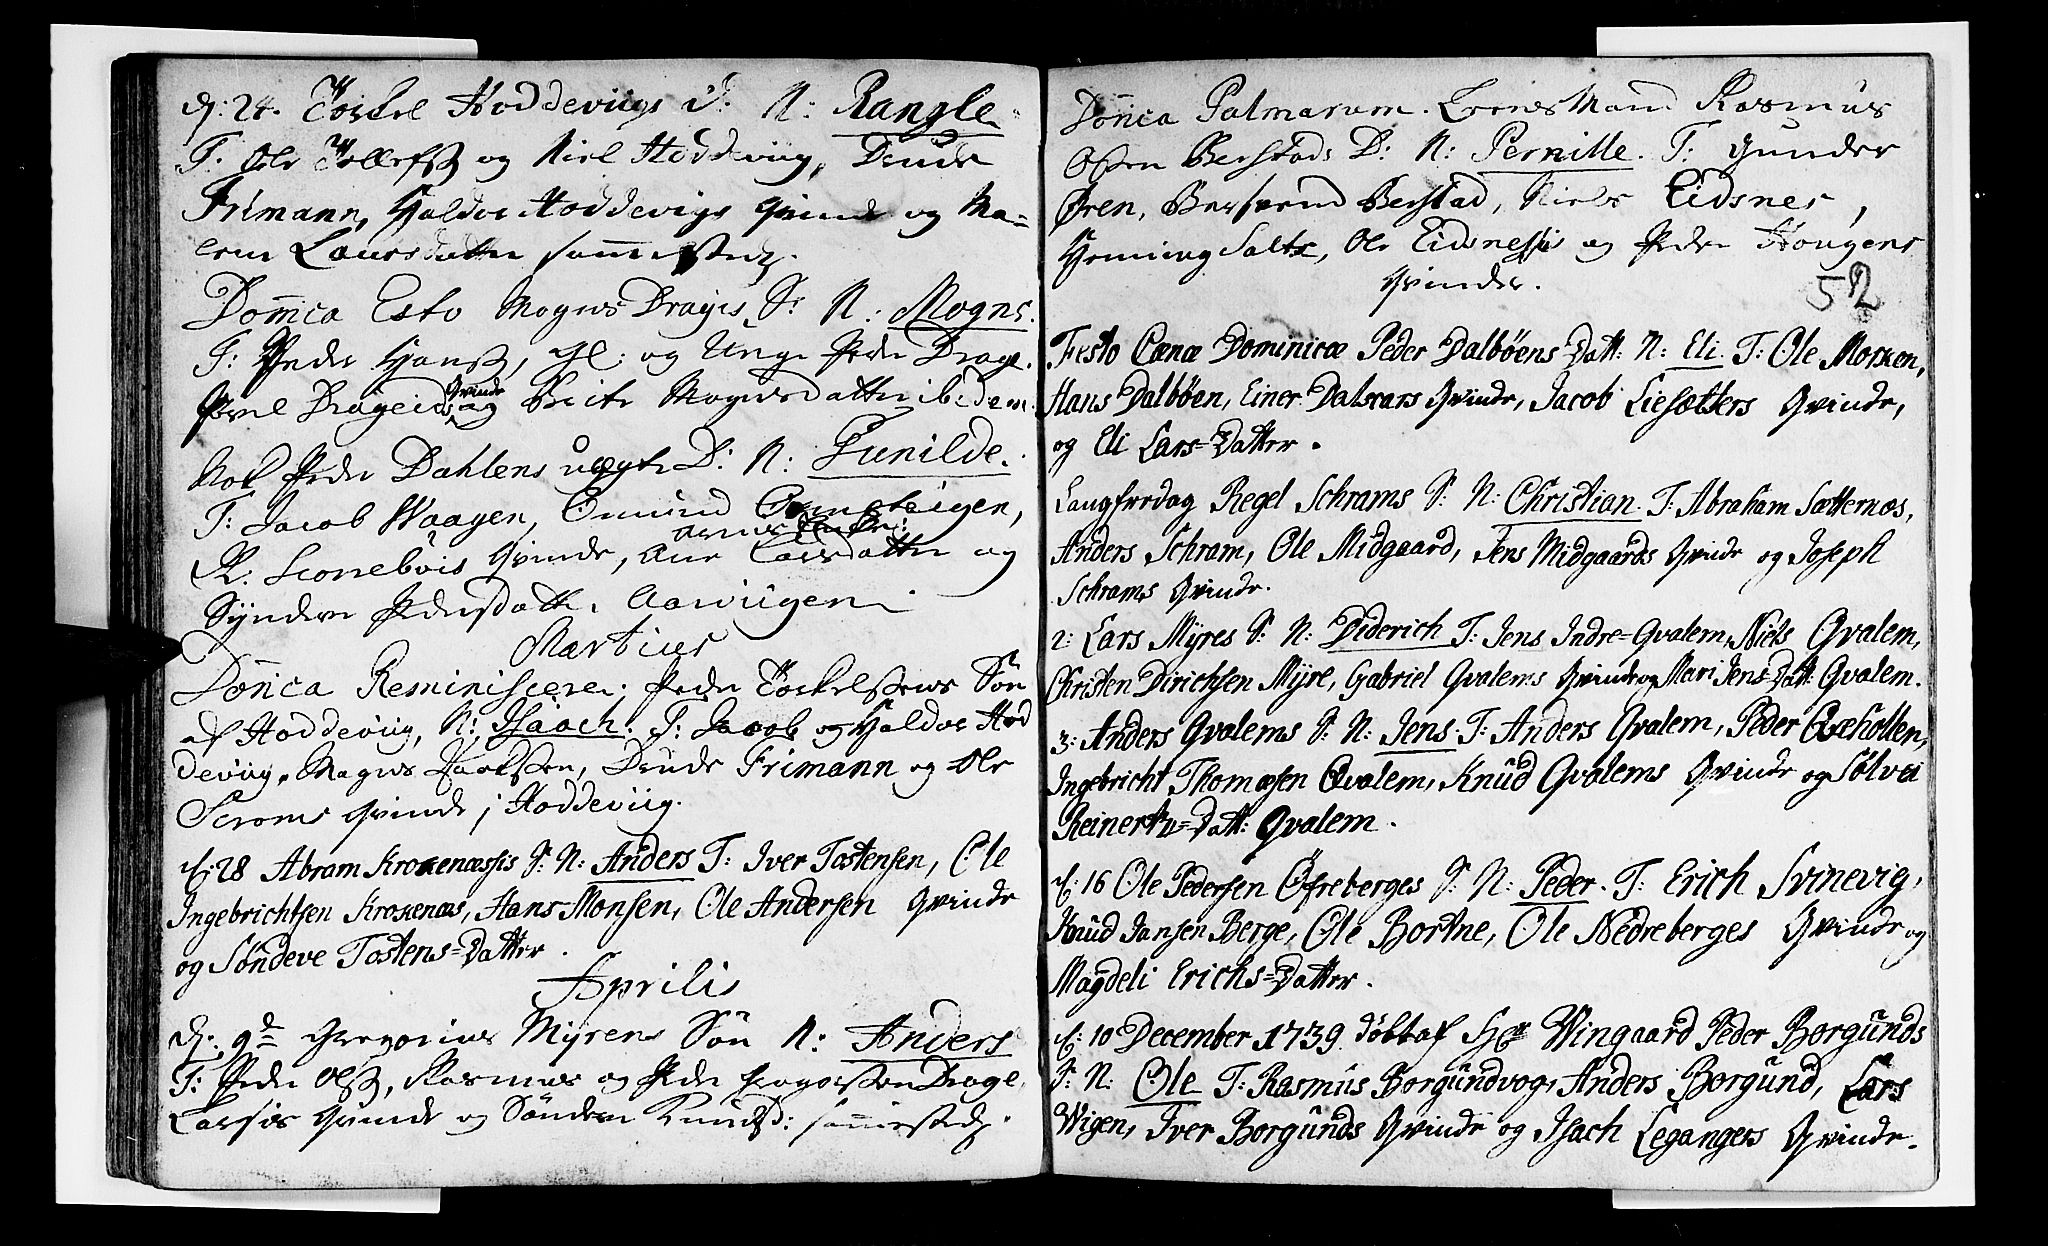 d: 24. Torkel Hoddeviigs D: N: Rangle.
T: Ole Tollefss og Niel Hoddeviig, Drude
Frimann, Haldor Hoddevigs Qvinde og Ma-
Larsdatter samestedz.
Domca Esto Mogns Drages S: N: Mogns.
T: Peder Hanss, gl: og Unge Peder Drage.
Poul Drageids Qvinde og Brite Mognsdatter ibidem
Nok Peder Dahlens D: N: Gunilde.
T: Jacob Waagen, Omund
R. Qvinde, Ane Larsdatter og
Syndeve Pedersdatter Aarviigen
Martius
Domca Reminiscere. Peder Torkelssens Søn
af Hoddeviig, N: Isaach. T: Jacob og Haldor Hod
deviig, Magns Jacobssen, Drude Frimann og Ole
Scroms Qvinde i Hoddeviig.
d: 28 Abram Kroxenæssis S: N: Anders T: Iver Tostensen, Ole
Ingebrichtsen Kroxenæs, Hans Monsen, Ole Andersen Qvinde
og Søndeve Tostens=Datter.
Aprilis
d: 9de Gregorius Myrens Søn N: Anders
T: Peder Olss, Rasmus og Peder Drage,
Qvinde og Søndeve Knudsd: samestedz.
Domca Palmarum. Lensmand Rasmus
Olsen Berstads D: N: Pernille. T: Gunder
Øren, Berstad, Niels Eidsnes,
Henning Salte, Ole Eidsnessis og Peder Hougens
Qvinder.
52
Festo Cænæ Dominicæ Peder Dalbøens Datt: N: Eli T: Ole Morken,
Hans Dalbøen, Einer Dalscars Qvinde, Jacob Liesætters Qvinde,
og Eli Lars=Datter.
Langfredag Regel Schrams S: N: Christian. T: Abraham Sætternæs,
Anders Schram, Ole Midgaard, Jens Midgaards Qvinde og Joseph
Schrams Qvinde.
2: Lars Myres S: N: Diderich T: Jens Indre=Qvalem, Niels Qvalem,
Christen Dirichsen Myre, Gabriel Qvalems Qvinde og Mari Jens=Datt: Qvalem.
3: Anders Qvalems S: N: Jens. T: Anders Qvalem, Peder Qvæholten,
Ingebricht Thomæsen Qvalem, Knud Qvalems Qvinde og Sølvei
Reinertz=Datt: Qvalem.
d: 16 Ole Pedersen Øfreberges S: N: Peder. T: Erich Svinevig,
Knud Jansen Berge, Ole Bortne, Ole Nedreberges Qvinde og
Magdeli Erichs=Datter.
d: 10 December 1739 døbt af Hr Wingaard Peder Borgunds
S: N: Ole T: Rasmus Borgundvog, Anders Borgund, Lars
Wigen, Iver Borgunds Qvinde og Isach Legangers Qvinde.